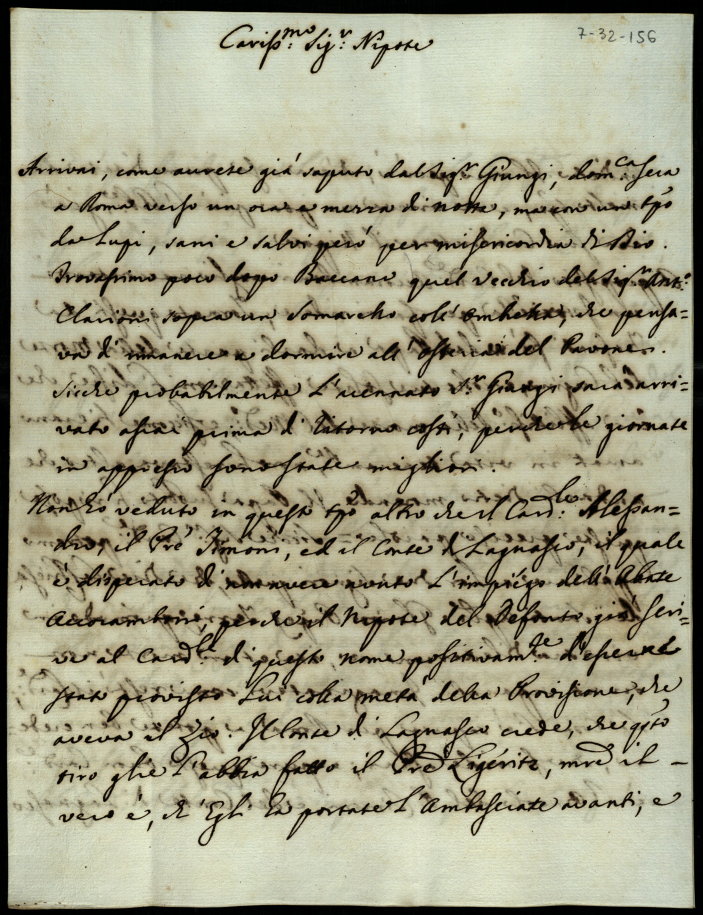 7-32-156
Cariss:mo Sig:r Nipote
Arrivai, come avrete già saputo dal Sig:r Giungi, dom:ca sera
a Roma verso un ora e mezza di notte, ma con un tpõ
da Lupi, sani e salvi però per misericordia di Dio.
Trovassimo poco dopo Baccano quel vecchio del Sig:r Ant:o
Clarioni sopra un somarello coll' ombrella, che pensa=
va di rimanere a dormire all' osteria del Pavone.
Sicche probabilmente l'accennato S:r Giungi sarà arri=
vato assai prima di ritorno costì, perche le giornate
in appresso sono state migliori.
Non hò veduto in questo tpõ altro che il Card:le Alessan=
dro, il Prẽ Simoni, ed il Conte di Lagnasco, il quale
è disperato di non avere avuto l'impiego dell' Abate
Accoramboni, perche il Nipote del Defonto già scri=
ve al Card:le di questo nome positivam:te d'essere
stato provisto Lui colla metà della Provisione, che
aveva il Zio. Il Conte di Lagnasco crede, che q̃sto
tiro glie l'abbia fatto il Prẽ Ligeritz, mrẽ il
vero è, ch' Egli ha portate l'Ambasciate avanti, e